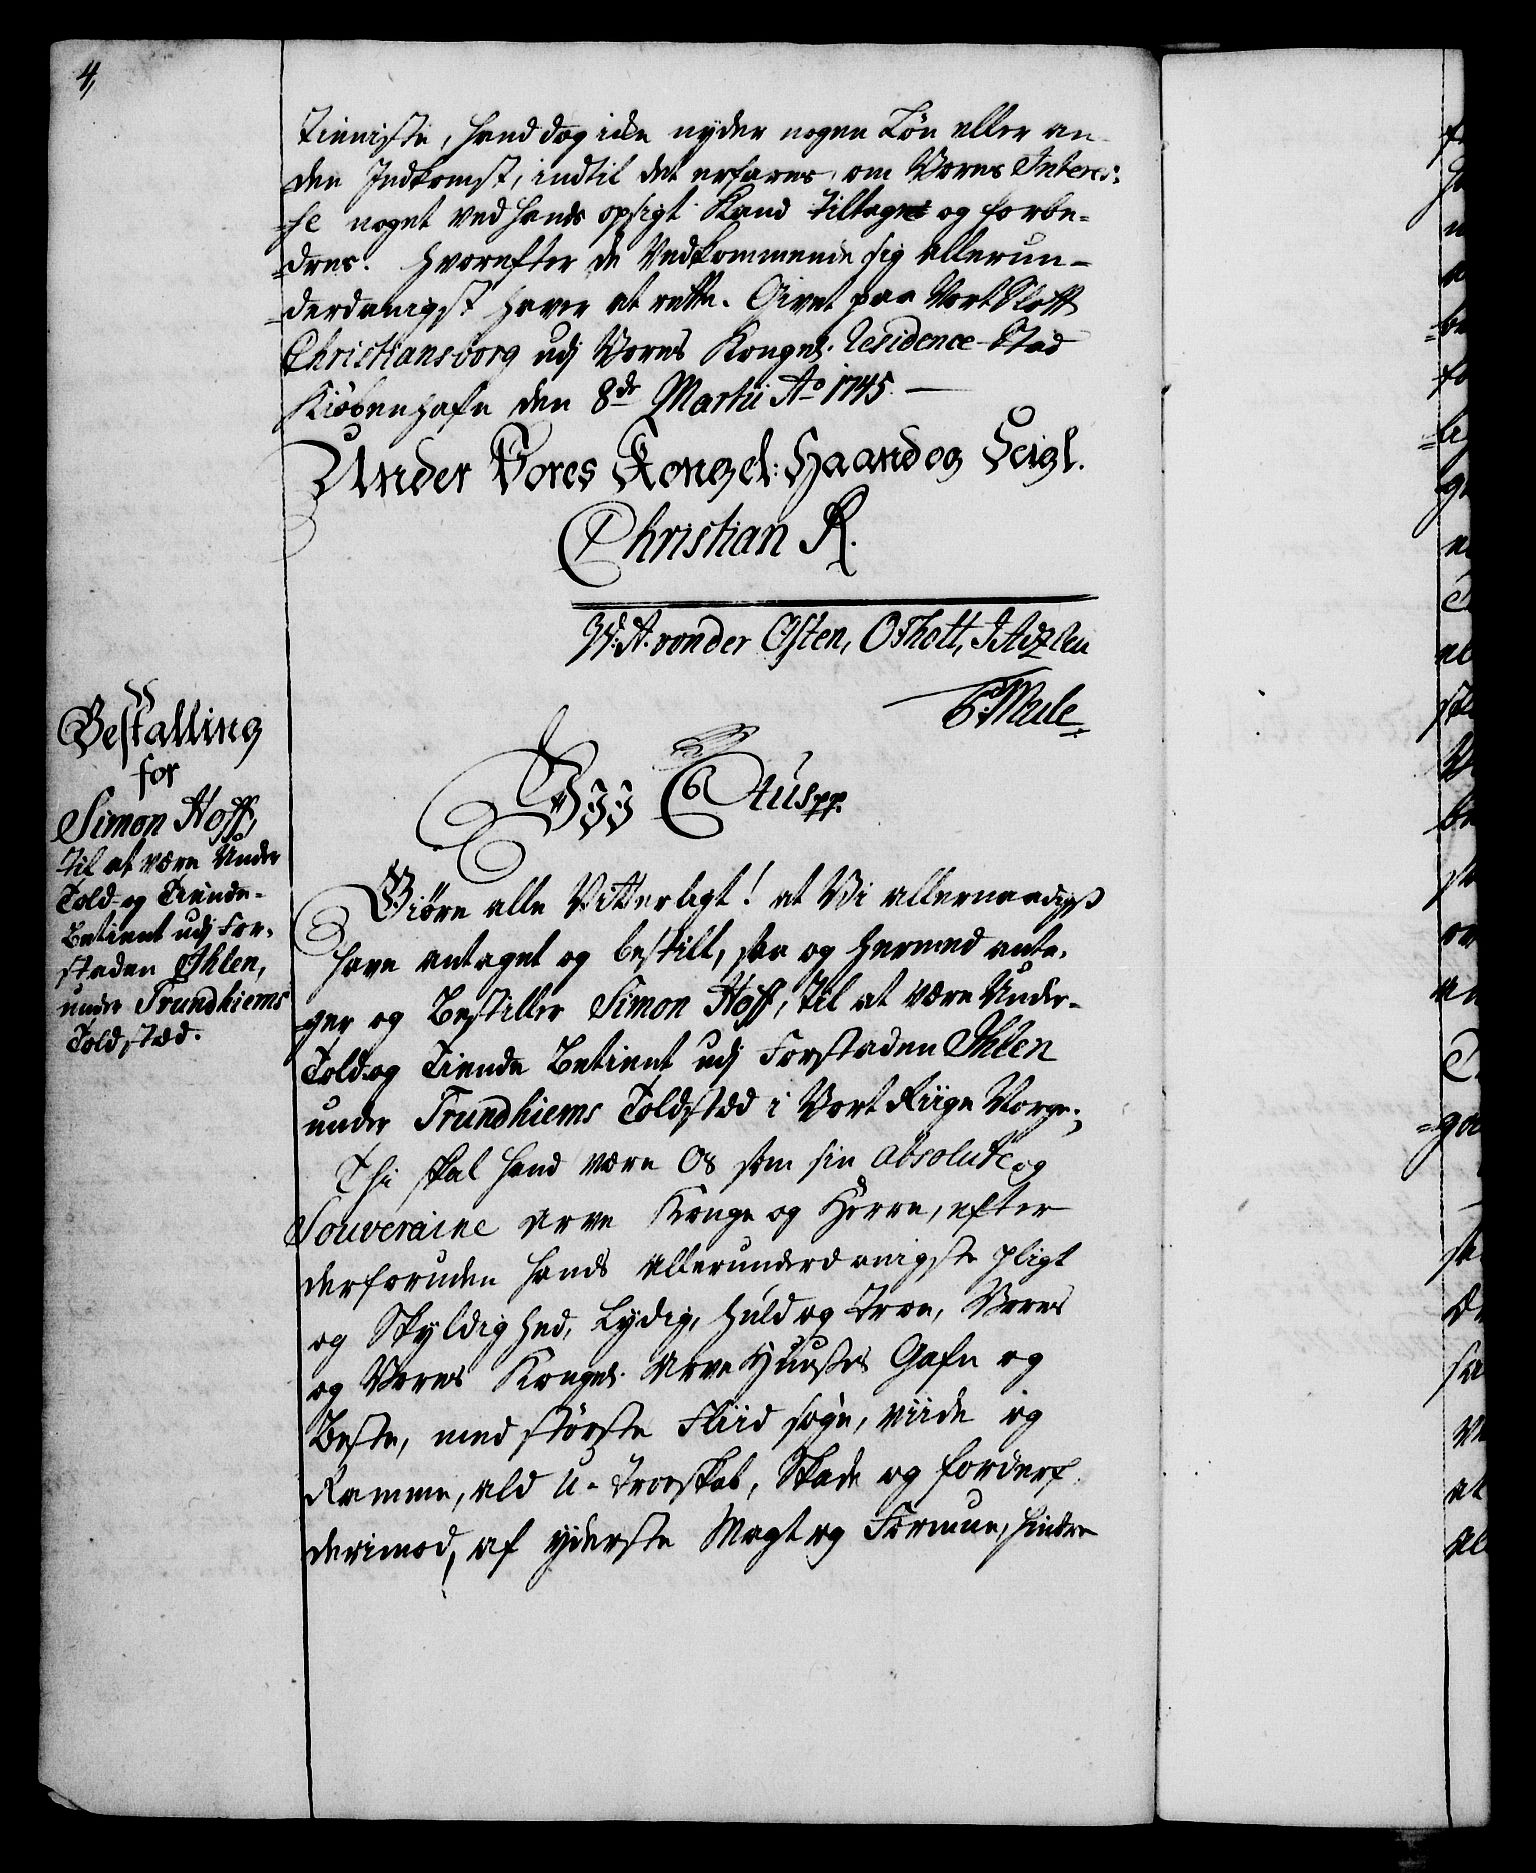 4,
tieniste, hand dog icke nyder nogen Løn eller an-
den Indkomst, indtil det erfares, om Vores Interes-
=se noget ved hands opsigt kand tiltage og forbe-
=dres. Hvorefter de Vedkommende sig allerun-
=derdanigst haver at rette. Givet paa Vort Slott
Christiansborg udj Vores Kongel. Residence-Stad
Kiøbenhafn den 8de Martii Ao 1745.
Under Vores Kongel: Haand og Seigl.
Christian R.
W: A. von der Osten, O Thott,
Bestalling
for
Simon Hoff,
til at være Under
Told- og Tiende-
Betient udj For-
staden Ihlen,
under Trundhiems
Toldstæd.
Vjj C 6tus pp.
Giøre alle Vitterligt! at Vi allernaadigst
have antaget og bestilt, saa og hermed anta-
ger og Bestiller Simon Hoff, til at være Under-
Told og Tiende Betient udj Forstaden Ihlen
under Trundhiems Toldstæd i Vort Riige Norge;
Thi skal hand være Os som sin absolute og
Souveraine Arve Konge og Herre, efter
derforuden hands allerunderdanigste pligt
og Skyldighed, Lydig, huld og troe, Vores
og Vores Kongel. Arve Huuses Gafn og
Beste, med største Fliid søge, viide og
Ramme, ald U-troeskab, Skade og forderf
derimod, af yderste Magt og Formue, hindre